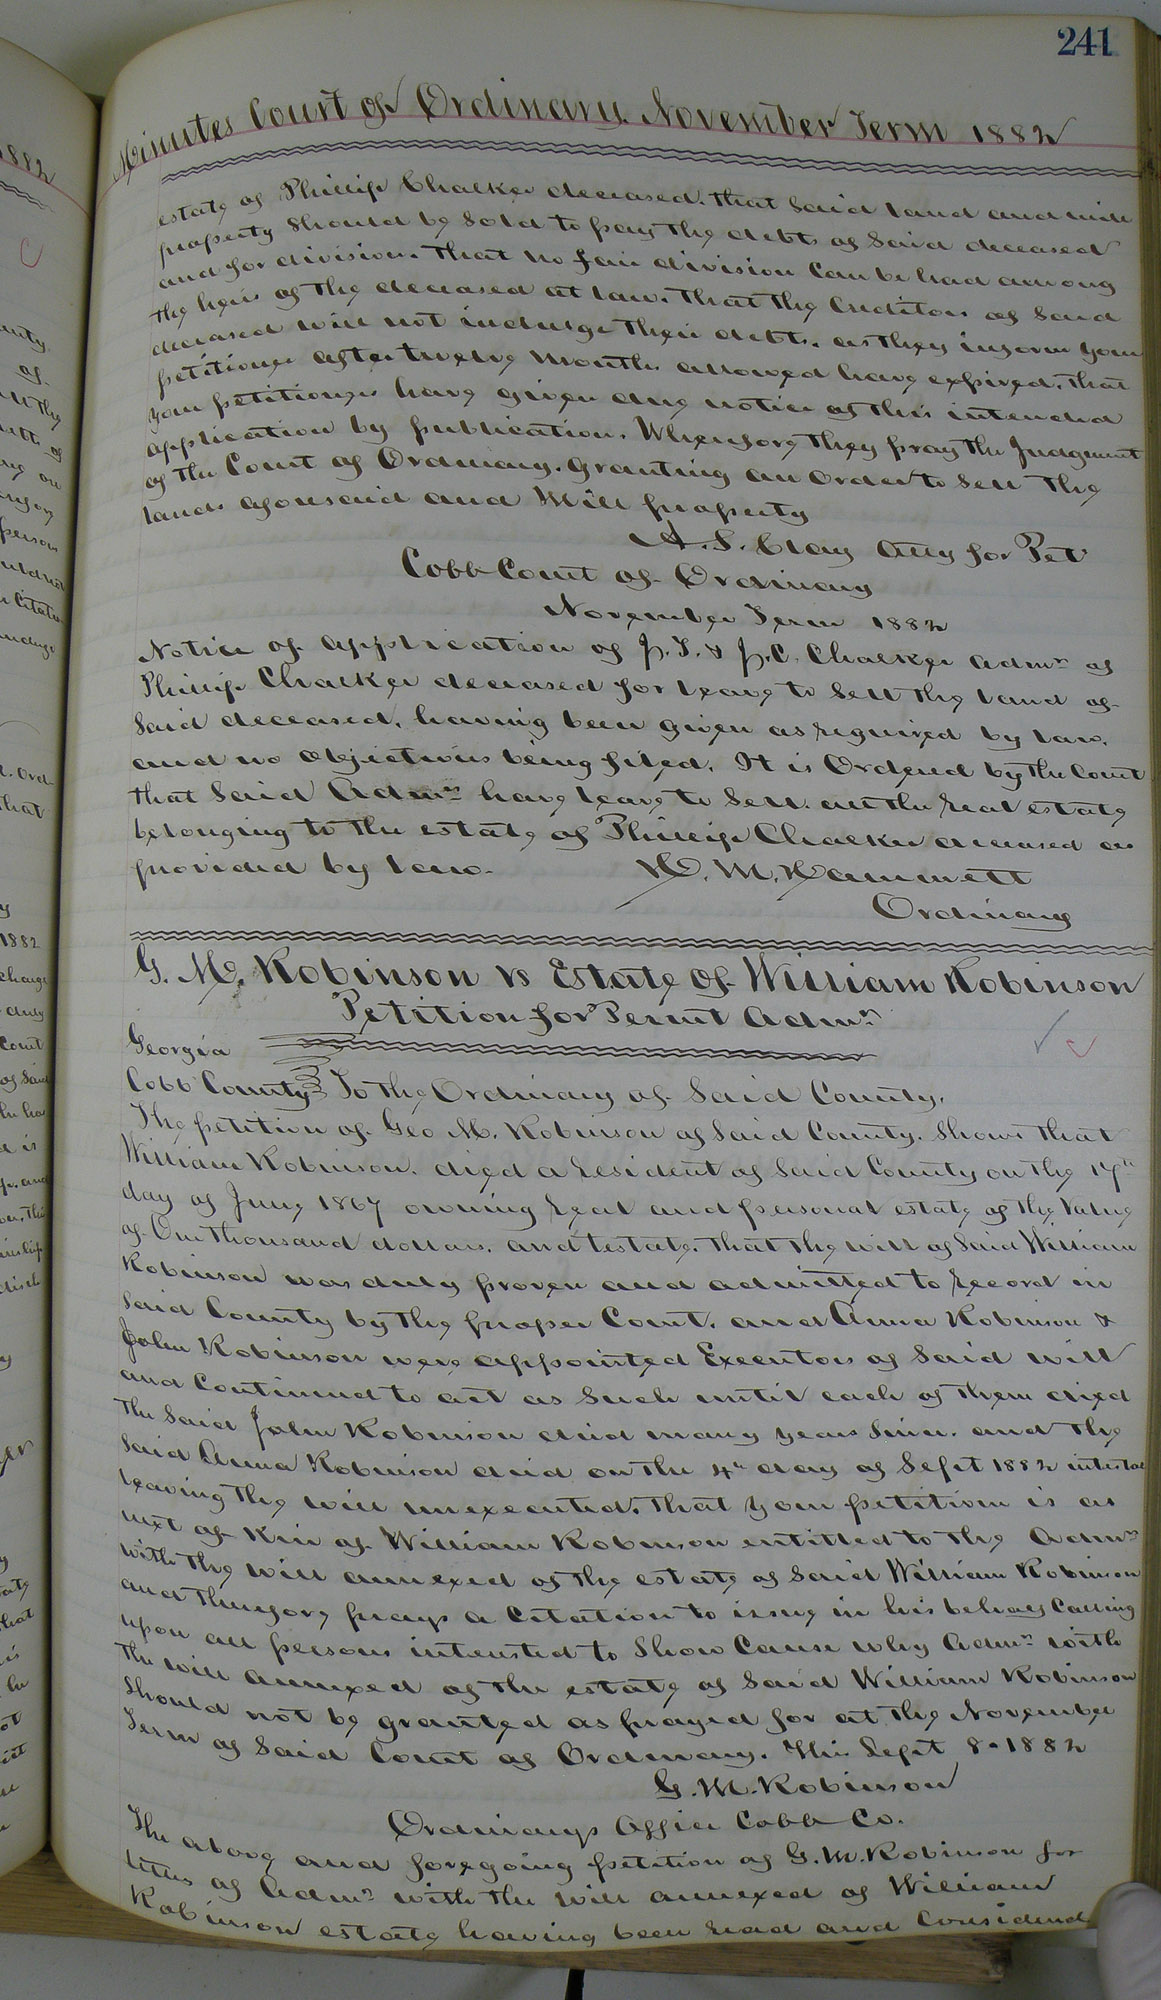 241
Minutes Court of Ordinary November Term 1882
estate of Phillip Chalker deceased. That said land and mill
property should be sold to pay the debts of said deceased
and for division. That no fair division can be had among
the heirs of the deceased at law. That the Creditors of said
deceased will not indulge their debts. as they inform your
petitioner after twelve months allowed have expired. That
your petitioners have given due notice of this intended
application by publication. Wherefore they pray the Judgment
of the Court of Ordinary. granting an order to sell the
lands aforesaid and Mill property
A. S. Clay Atty for Pet
Cobb Court of Ordinary
November Term 1882
Notice of application of J. T. & J. C. Chalker Admrs of
Phillip Chalker deceased for leave to sell the land of
said deceased, having been given as required by law.
and no objections being filed. It is Ordered by the Court
that said Admrs have leave to sell all the real estate
belonging to the estate of Phillip Chalker deceased as
provided by law.
H. M. Hammett
Ordinary
G. M. Robinson vs Estate of William Robinson
Petition for Permt Admn
Georgia
Cobb County To the Ordinary of Said County.
The petition of Geo M. Robinson of said County. Shows that
William Robinson. died a resident of said County on the 17th
day of June 1867 owning real and personal estate of the value
of One thousand dollars. and testate. That the will of said William
Robinson was duly proven and admitted to record in
said County by the proper Court. and Anna Robinson &
John Robinson were appointed Executors of said will
and Continued to act as such until each of them died
The said John Robinson died many years since. and the
said Anna Robinson died on the 4th day of Sept 1882 intestate
leaving the will unexecuted. That your petition is as
next of Kin of William Robinson entitled to the Admn
with the will annexed of the estate of said William Robinson
and therefore prays a Citation to issue in his behalf Calling
upon all persons interested to Show Cause why Admn with
the will annexed of the estate of said William Robinson
should not be granted as prayed for at the November
Term of said Court of Ordinary. This Sept 8. 1882
G. M. Robinson
Ordinarys Office Cobb Co.
The above and foregoing petition of G. M. Robinson for
letters of Admn with the will annexed of William
Robinson estate having been read and Considered